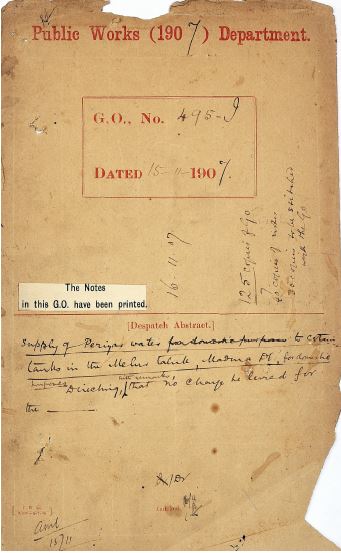 Public Works (1907) Department.
G.O., No. 495-I
DATED 15-11-1907.
16-11-07
125 copies of GO
20 copies of notes
35 copies to be stitched
with the GO
The Notes
in this G.O. have been printed.
[Despatch Abstract.]
Supply of Periyar water for domestic purposes to certain
tanks in the Melur taluk, Madura Dt, for domestic
purposes Directing, with remarks, that no charge be levied for
the
15/11